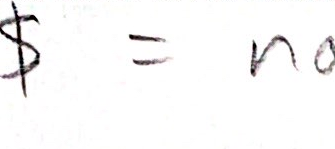 $ = no